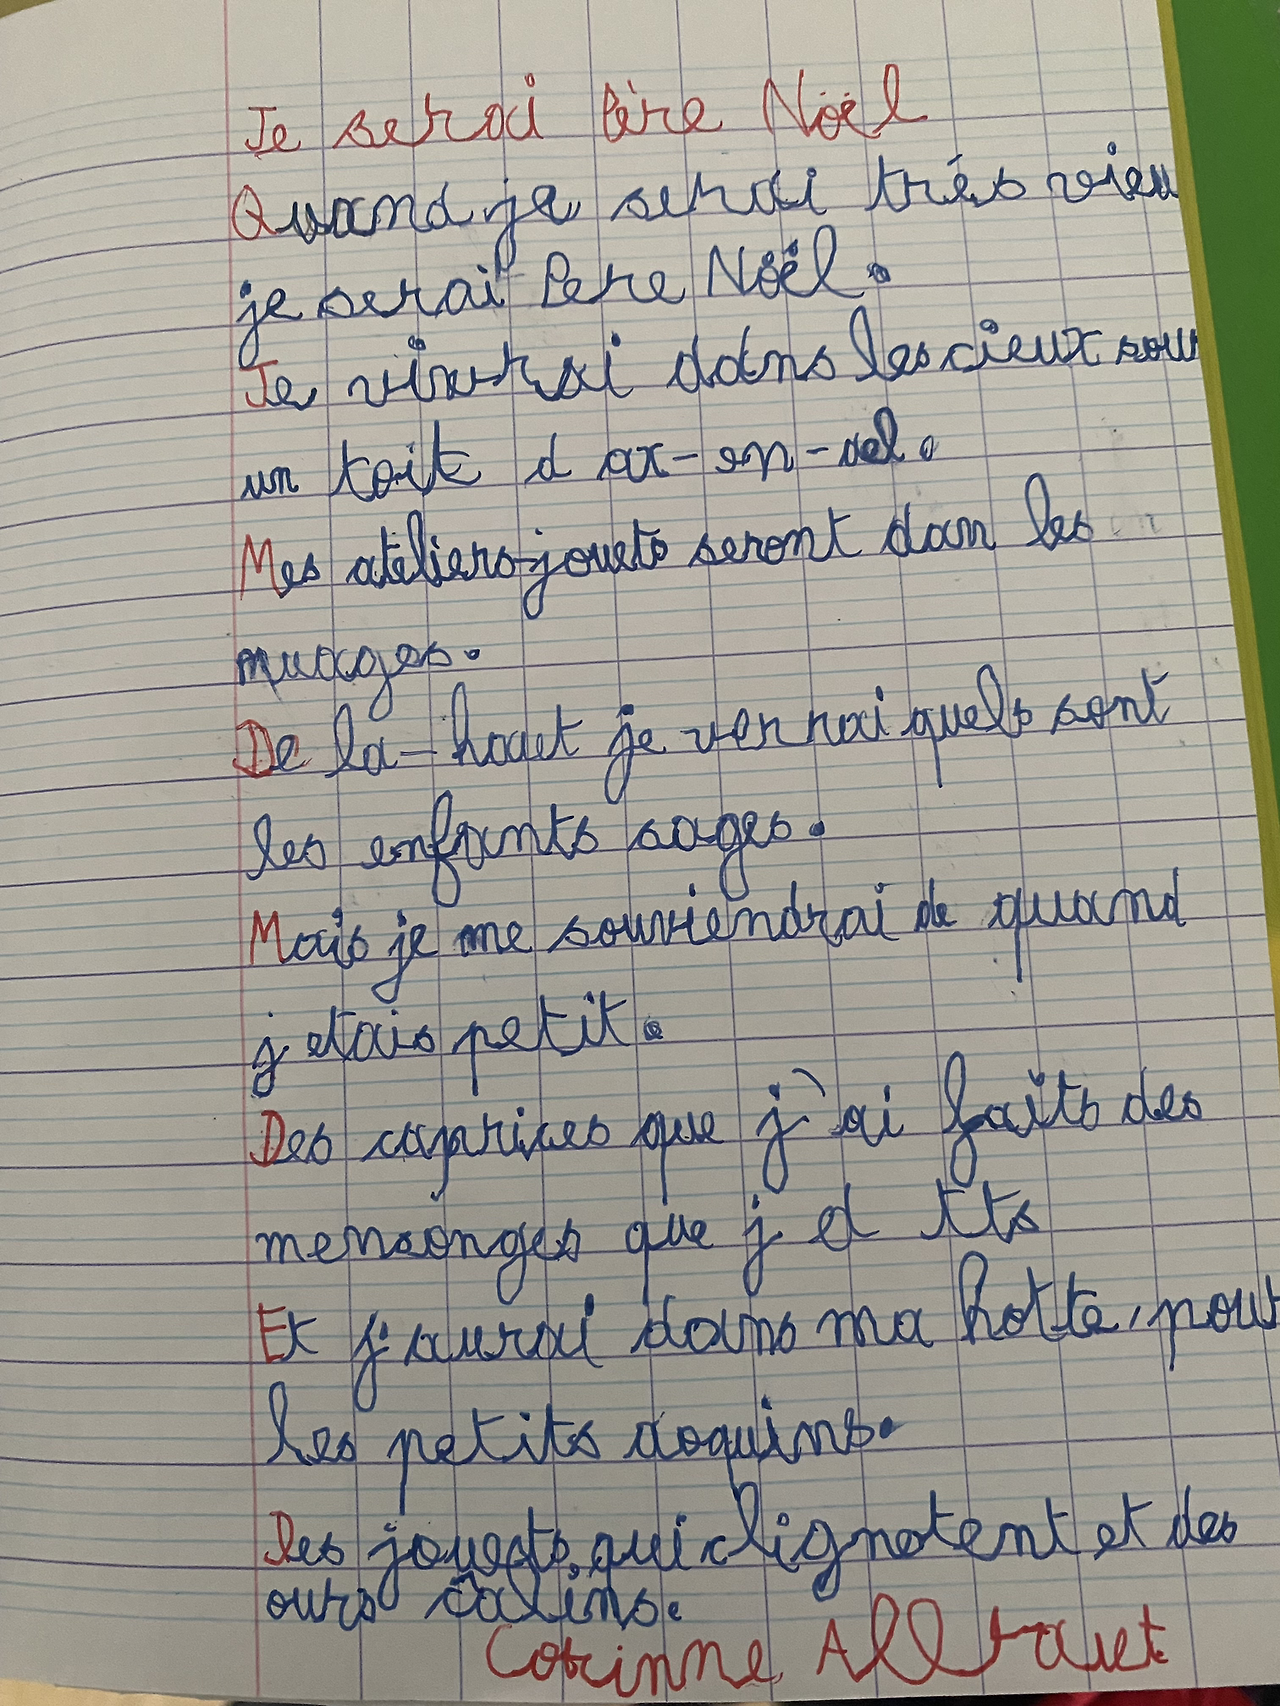 Je serai Père Noël
Quand je serai trés vieu
je serai Pere Noël.
Je vivrai dans les cieux sour
un toit d ax-en-del.
Mes atéliers-jouets seront dan les
nuages.
De la-haut je verrai quels sont
les enfants sages.
Mais je me souviendrai de quand
j etais petit.
Des caprices que j'ai faits des
mensonges que j et tts
Et j'aurai dans ma hotte, pour
les petits coquins.
Des jouets, qui clignotent et des
ours calins.
Corinne Albaut